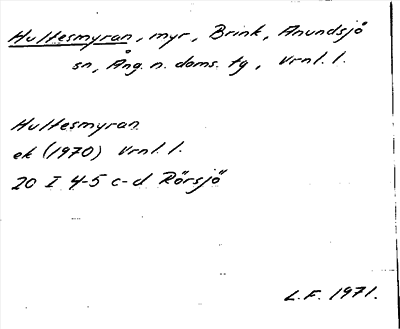 Hultesmyran, myr, Brink, Anundsjö
sn, Ång. n. doms. tg, Vrnl. l.
Hultesmyran
ek (1970) Vrnl. l.
20 I 4-5 c-d Rörsjö
L.F. 1971.